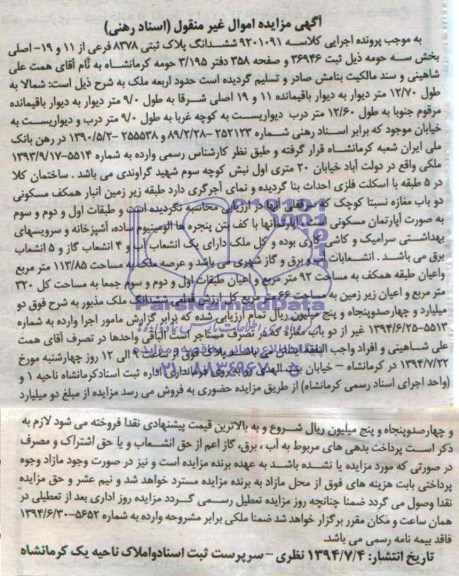 آگهی مزایده اموال غیر منقول (اسناد رهنی)
به موجب پرونده اجرایی کلاسه ۹۲۰۱۰۹۱ ششدانگ پلاک ثبتی ۸۳۷۸ فرعی از ۱۱ و ۱۹- اصلی
بخش سه حومه ذیل ثبت ۳۶۹۴۶ و صفحه ۳۵۸ دفتر ۳/۱۹۵ حومه کرمانشاه به نام آقای همت علی
شاهینی و سند مالکیت بنامش صادر و تسلیم گردیده است حدود اربعه ملک به شرح ذیل است: شمالا به
طول ۱۲/۷۰ متر دیوار به دیوار باقیمانده ۱۱ و ۱۹ اصلی شرقا به طول ۹/۰ متر دیوار به دیوار باقیمانده
مرقوم جنوبا به طول ۱۲/۶۰ متر درب دیواریست به کوچه غربا به طول ۹/۰ متر درب و دیواریست به
خیابان موجود که برابر اسناد رهنی شماره ۲۵۲۱۲۳-۸۹/۲/۲۸ و ۲۵۵۵۳۸-۱۳۹۰/۵/۲ در رهن بانک
ملی ایران شعبه کرمانشاه قرار گرفته و طبق نظر کارشناس رسمی وارده به شماره ۵۵۱۴-۱۳۹۳/۹/۱۷
ملکی واقع در دولت آباد خیابان ۳۰ متری اول نبش کوچه سوم شهید گراوندی می باشد . ساختمان کلا
در ۵ طبقه با اسکلت فلزی احداث بنا گردیده و نمای آجرگری دارد طبقه زیر زمین انبار همکف مسکونی
دو باب مغازه نسبتا کوچک که سرقفلی آنها در ارزیابی محاسبه نگردیده است و طبقات اول و دوم و سوم
به صورت آپارتمان مسکونی است آپارتمانها با کف بتن پنجره ها آلومینیوم ساده، آشپزخانه و سرویسهای
بهداشتی سرامیک و کاشی کاری بوده و کل ملک دارای یک انشعاب آب و ۴ انشعاب گاز و ۵ انشعاب
برق می باشد . انشعابات آب و برق و گاز شهری می باشد و عرصه ملک به مساحت ۱۱۳/۸۵ متر مربع
واعیان طبقه همکف به مساحت ۹۲ متر مربع و اعیان طبقات اول و دوم و سوم جمعا به مساحت کل ۳۲۰
متر مربع و اعیان زیر زمین به مساحت متر مربع کل ارزش قطعی ششدانگ ملک مذبور به شرح فوق دو
میلیارد و چهارصدوپنجاه و پنج میلیون ریال تمام ارزیابی شده که برابر گزارش مامور اجرا وارده به شماره
۵۵۱۳-۱۳۹۴/۶/۲۵ غیر از دو باب مغازه که در تصرف مستاجر است الباقی واحدها در تصرف آقای همت
علی شاهینی و افراد واجب النفقه ایشان می باشد. پلاک فوق از ساعت ۹ الی ۱۲ روز چهارشنبه مورخ
۱۳۹۴/۷/۲۲ در کرمانشاه – خیابان بنت الهدی روبروی فرمانداری اداره ثبت اسناد کرمانشاه ناحیه ۱ و
(واحد اجرای اسناد رسمی کرمانشاه) از طریق مزایده حضوری به فروش می رسد مزایده از مبلغ دو میلیارد
و چهارصدوپنجاه و پنج میلیون ریال شروع و به بالاترین قیمت پیشنهادی نقدا فروخته می شود لازم به
ذکر است پرداخت بدهی های مربوط به آب ، برق، گاز اعم از حق انشعاب و یا حق اشتراک و مصرف
در صورتی که مورد مزایده یا نشده باشد به عهده برنده مزایده است و نیز در صورت وجود مازاد وجوه
پرداختی بابت هزینه های فوق از محل مازاد به برنده مزایده مسترد خواهد شد و نیم عشر و حق مزایده
نقدا وصول می گردد ضمنا چنانچه روز مزایده تعطیل رسمی گردد مزایده روز اداری بعد از تعطیلی در
همان ساعت و مکان مقرر برگزار خواهد شد ضمنا ملکی برابر مشروحه وارده به شماره ۵۶۵۲-۱۳۹۴/۶/۳۰
فاقد بیمه نامه رسمی می باشد.
تاریخ انتشار: ۱۳۹۴/۷/۴ نظری – سرپرست ثبت اسنادواملاک ناحیه یک کرمانشاه